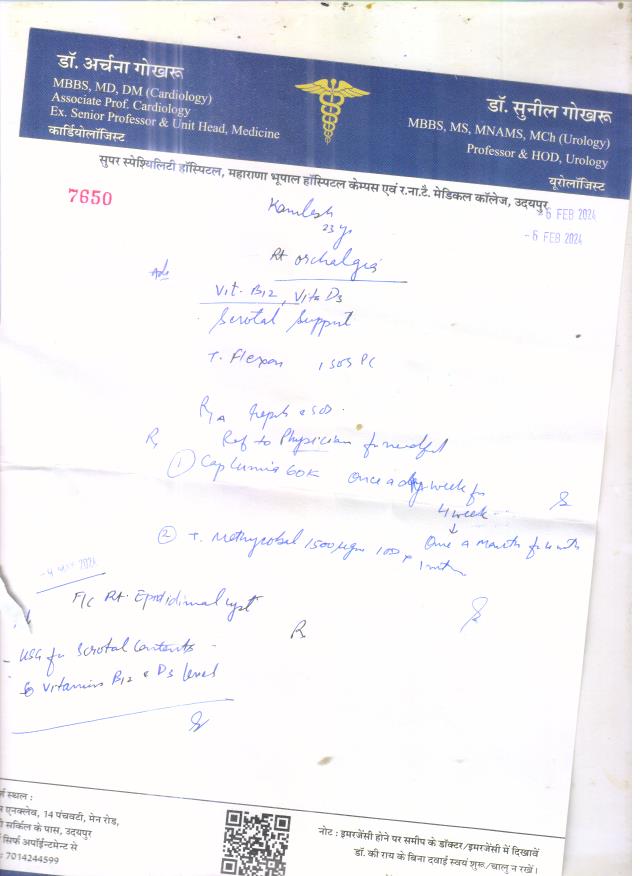 डॉ. अर्चना गोखरू
MBBS, MD, DM (Cardiology)
Associate Prof. Cardiology
Ex. Senior Professor & Unit Head, Medicine
कार्डियोलॉजिस्ट
डॉ. सुनील गोखरू
MBBS, MS, MNAMS, MCh (Urology)
Professor & HOD, Urology
यूरोलॉजिस्ट
सुपर स्पेश्यिलिटी हॉस्पिटल, महाराणा भूपाल हॉस्पिटल केम्पस एवं र.ना.टै. मेडिकल कॉलेज, उदयपुर
7650
6 FEB 2024
- 6 FEB 2024
Kamlesh
23 yr
Rt orchalgia
Adv
Vit. B12, Vita D3
Scrotal Support
T. Flexon 1 SOS PC
Ref to Physician for needful
① Cap Lumia 60K Once a week for
4 week
② T. Methycobal 1500 mgm 1 OD x 1 mth
Once a Month for 4 mth
F/C Rt. Epididimal cyst
Rx
- USG for Scrotal Contents
Vitamins B12 & D3 level
स्थल :
एनक्लेव, 14 पंचवटी, मेन रोड,
सर्किल के पास, उदयपुर
सिर्फ अपॉईन्टमेन्ट से
: 7014244599
नोट : इमरजेंसी होने पर समीप के डॉक्टर/इमरजेंसी में दिखावें
डॉ. की राय के बिना दवाई स्वयं शुरू/चालु न रखें।